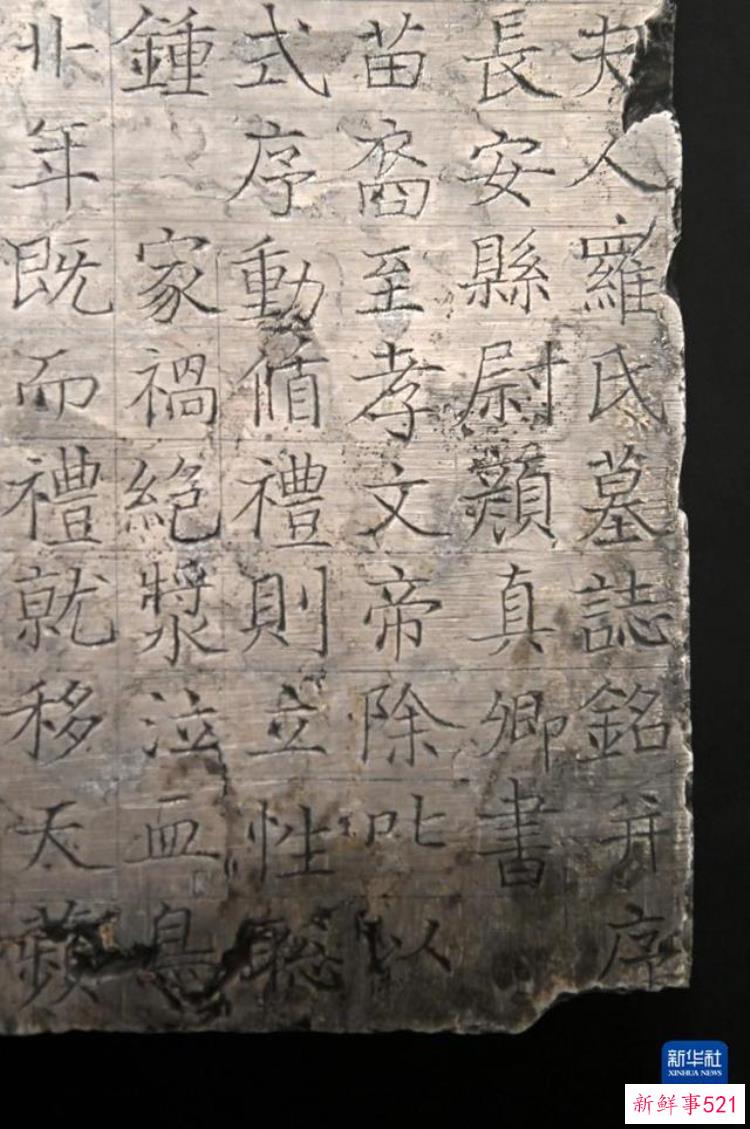 夫人羅氏墓誌銘并序
長安縣尉顏真卿書
苗裔至孝文帝除叱以
式序動循禮則立性聡
鍾家禍絕漿泣血息
廿年既而禮就移天蘋
新华社
XINHUA NEWS
新鲜事521